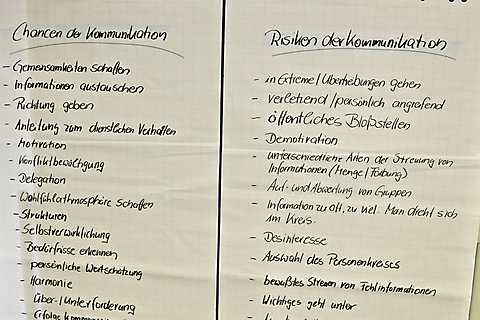 Chancen der Kommunikation
- Gemeinsamkeiten schaffen
- Informationen austauschen
- Richtung geben
- Anleitung zum dienstlichen Verhalten
- Motivation
- Konfliktbewältigung
- Delegation
- Wohlfühlathmosphäre schaffen
- Strukturen
- Selbstverwirklichung
- Bedürfnisse erkennen
- persönliche Wertschätzung
- Harmonie
- Über-/Unterforderung
- Erfolge
Risiken der Kommunikation
- in Extreme/Überhebungen gehen
- verletend/persönlich angreifend
- öffentliches Bloßstellen
- Demotivation
- unterschiedliche Arten der Streuung von
Informationen (Menge/Färbung)
- Auf- und Abwertung von Gruppen
- Information zu oft, zu viel. Man dreht sich
im Kreis.
- Desinteresse
- Auswahl des Personenkreises
- bewußtes Streuen von Fehlinformationen
- Wichtiges geht unter